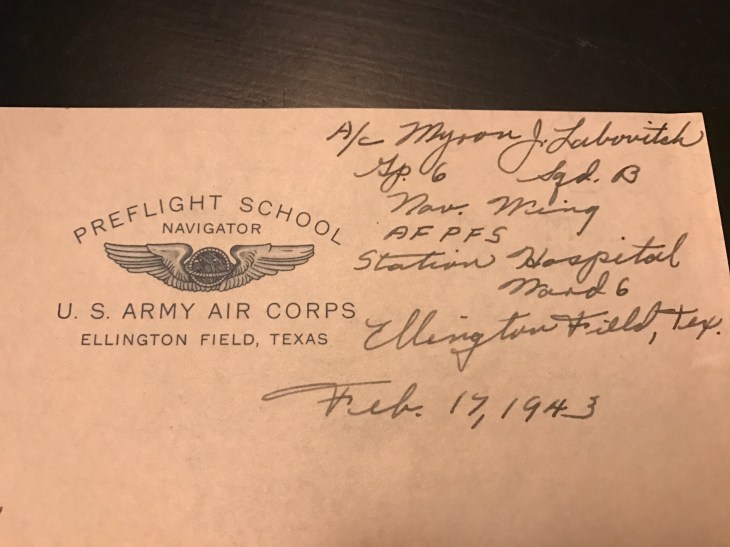 PREFLIGHT SCHOOL
NAVIGATOR
U. S. ARMY AIR CORPS
ELLINGTON FIELD, TEXAS
A/c Myron J. Labovitch
Gp. 6 Sqd. B
Nav. Wing
AFPFS
Station Hospital
Ward 6
Ellington Field, Tex.
Feb. 17, 1943